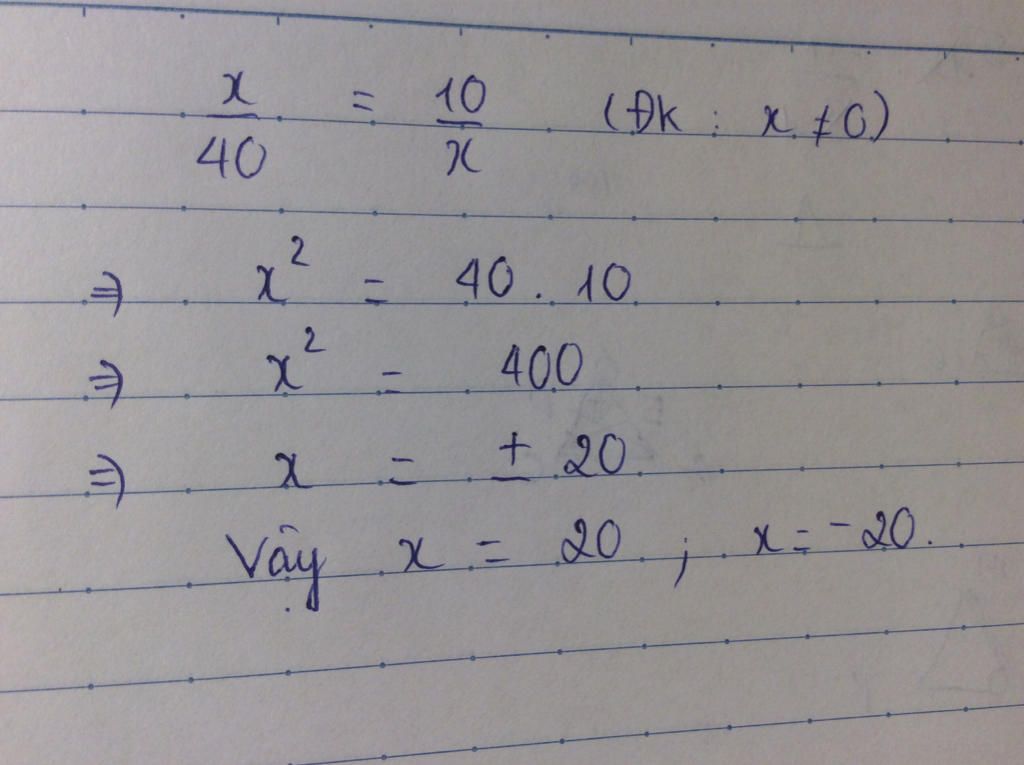 x/40 = 10/x (Đk : x ≠ 0)
⇒ x² = 40 . 10
⇒ x² = 400
⇒ x = ± 20
Vậy x = 20 ; x = -20.